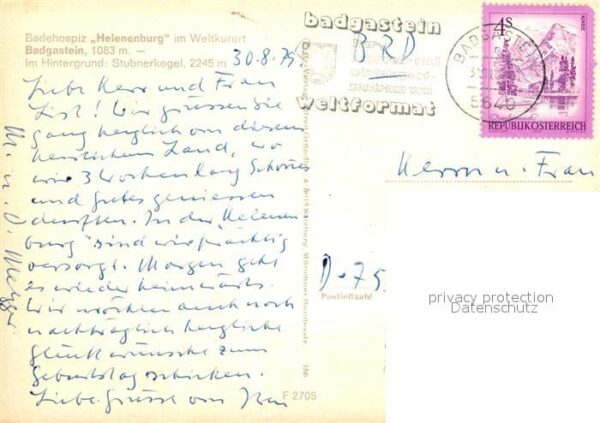 Badehospiz „Helenenburg" im Weltkurort
Badgastein, 1083 m. —
Im Hintergrund: Stubnerkogel, 2245 m
30.8.79
Liebe Herr und Frau
List! Wir grüssen Sie
ganz herzlich von diesem
herrlichen Land, wo
wir 3 Wochen lang Schönes
und gutes geniessen
durften. In der "Helenen
burg" sind wir prächtig
versorgt. Morgen geht
es wieder heimwärts.
Wir möchten auch noch
nachträglich herzliche
Glückwünsche zum
Geburtstag schicken.
Liebe Grüsse von Ihren
M. u. O. Metzger
F 2705
badgastein
weltformat
BRD
BADGASTEIN
5640
4S
REPUBLIK ÖSTERREICH
Herrn u. Frau
D-75
Postleitzahl
privacy protection
Datenschutz